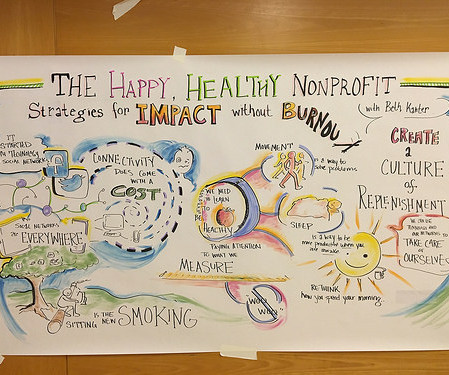 THE HAPPY, HEALTHY NONPROFIT
Strategies for IMPACT without BURNOUT
with Beth Kanter
IT
STARTED
SOCIAL NETWORKS
CONNECTIVITY
DOES COME
WITH A
COST
SOCIAL NETWORKS
are EVERYWHERE
SITTING IS THE NEW SMOKING
WE NEED
to LEARN
to
BE
HEALTHY
PAYING ATTENTION
TO WHAT WE
MEASURE
MOVEMENT
is a way to
solve problems
SLEEP
is a way to be
more productive when you
are awake
RE-THINK
how you spend your morning
CREATE
a
CULTURE
of
REPLENISHMENT
WE CAN USE
TECHNOLOGY AND
OUR NETWORKS TO
TAKE CARE
of
OURSELVES